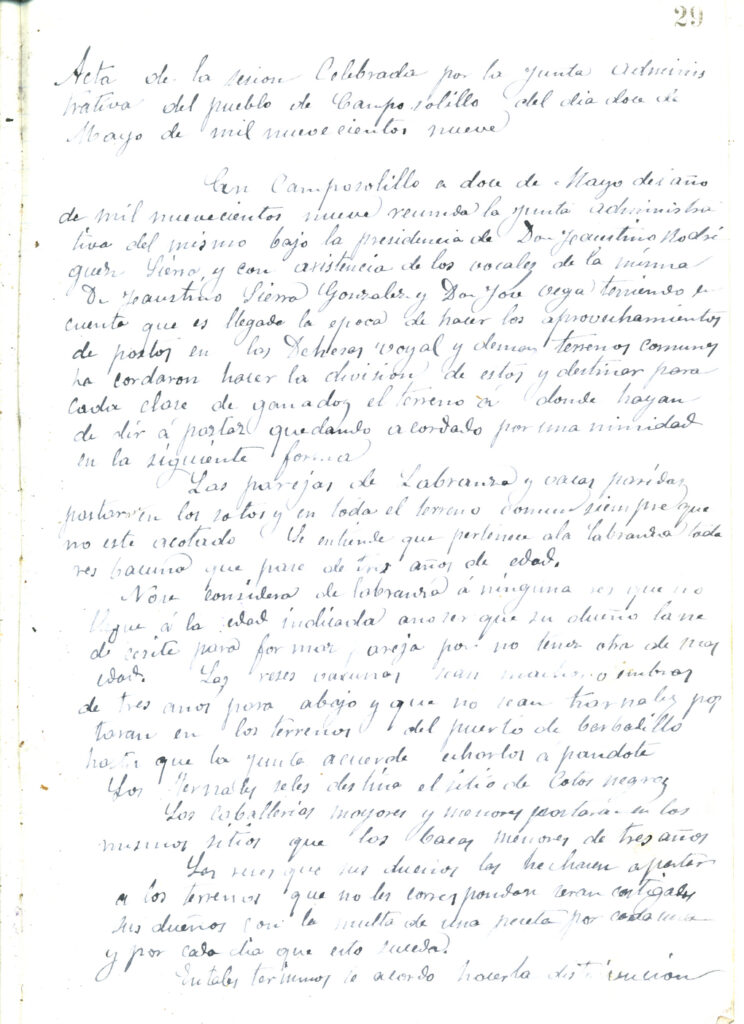 29
Acta de la sesion Celebrada por la Junta Adminis
trativa del pueblo de Camposolillo del dia doce de
Mayo de mil nuevecientos nueve
En Camposolillo a doce de Mayo del año
de mil nuevecientos nueve reunida la Junta Administra
tiva del mismo bajo la presidencia de Don Faustino Rodri
guez Sierra, y con asistencia de los vocales de la misma
Dn Faustino Sierra Gonzalez y Don Jose Vega teniendo en
cuenta que es llegada la epoca de hacer los aprovechamientos
de pastos en las Dehesas y demas terrenos comunes
ha cordaron hacer la division de estos y destinar para
cada clase de ganados el terreno á donde hayan
de dir á pastar quedando acordado por una nimidad
en la siguiente forma
Las parejas de Labranza y vacas paridas
pastarán en los sotos y en todo el terreno comun siempre que
no este acotado Se entiende que pertenece ala labranza toda
res bacuna que pase de tres años de edad.
Nose considera de labranza á ninguna res que no
llegue á la edad indicada anoser que su dueño lane
cesite para formar pareja por no tener otra de mas
edad. Las reses vacunas sean machos o embras
de tres años para abajo y que no sean
taran en los terrenos del puerto de
hasta que la junta acuerde echarlos á
Los seles destina el sitio de Cotos negros
Las caballerias mayores y menores pastarán en los
mismos sitios que las bacas menores de tres años
Las reses que sus dueños las hechasen apastar
a los terrenos que no les correspondan seran castigados
sus dueños con la multa de una peseta por cada una
y por cada dia que esto suceda.
Entales terminos se acordo hacerla distribucion